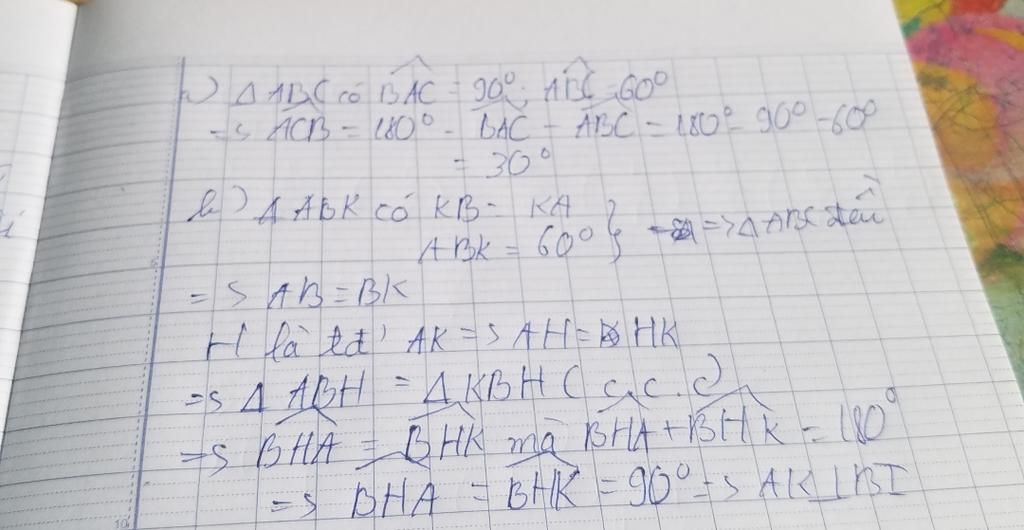 a) Δ ABC có BAC = 90°; ABC = 60°
=> ACB = 180° - BAC - ABC = 180° - 90° - 60°
= 30°
b) Δ ABK có KB = KA
ABK = 60° } => Δ ABC đều
=> AB = BK
H là tđ AK => AH = HK
=> Δ ABH = Δ KBH (c.c.c)
=> BHA = BHK mà BHA + BHK = 180°
=> BHA = BHK = 90° => AK ⊥ BI